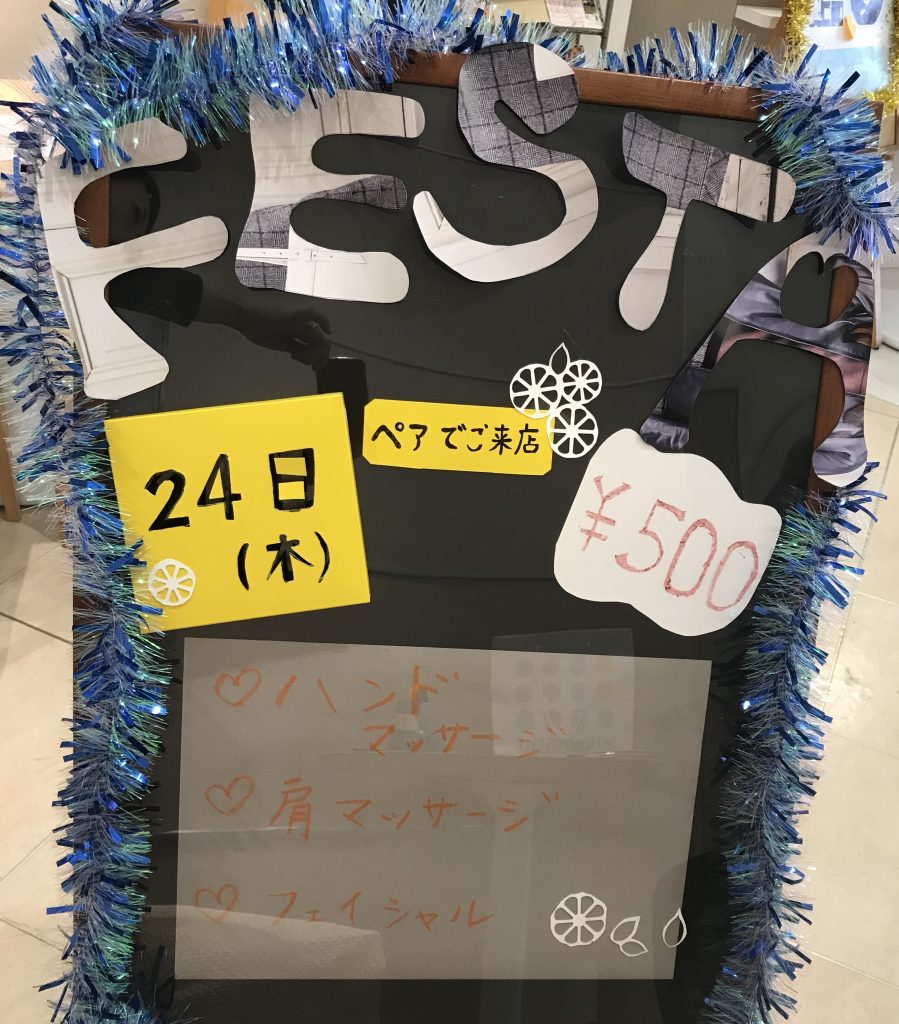 FESTA
ペアでご来店
24日
(木)
¥500
♡ハンド
マッサージ
♡肩マッサージ
♡フェイシャル